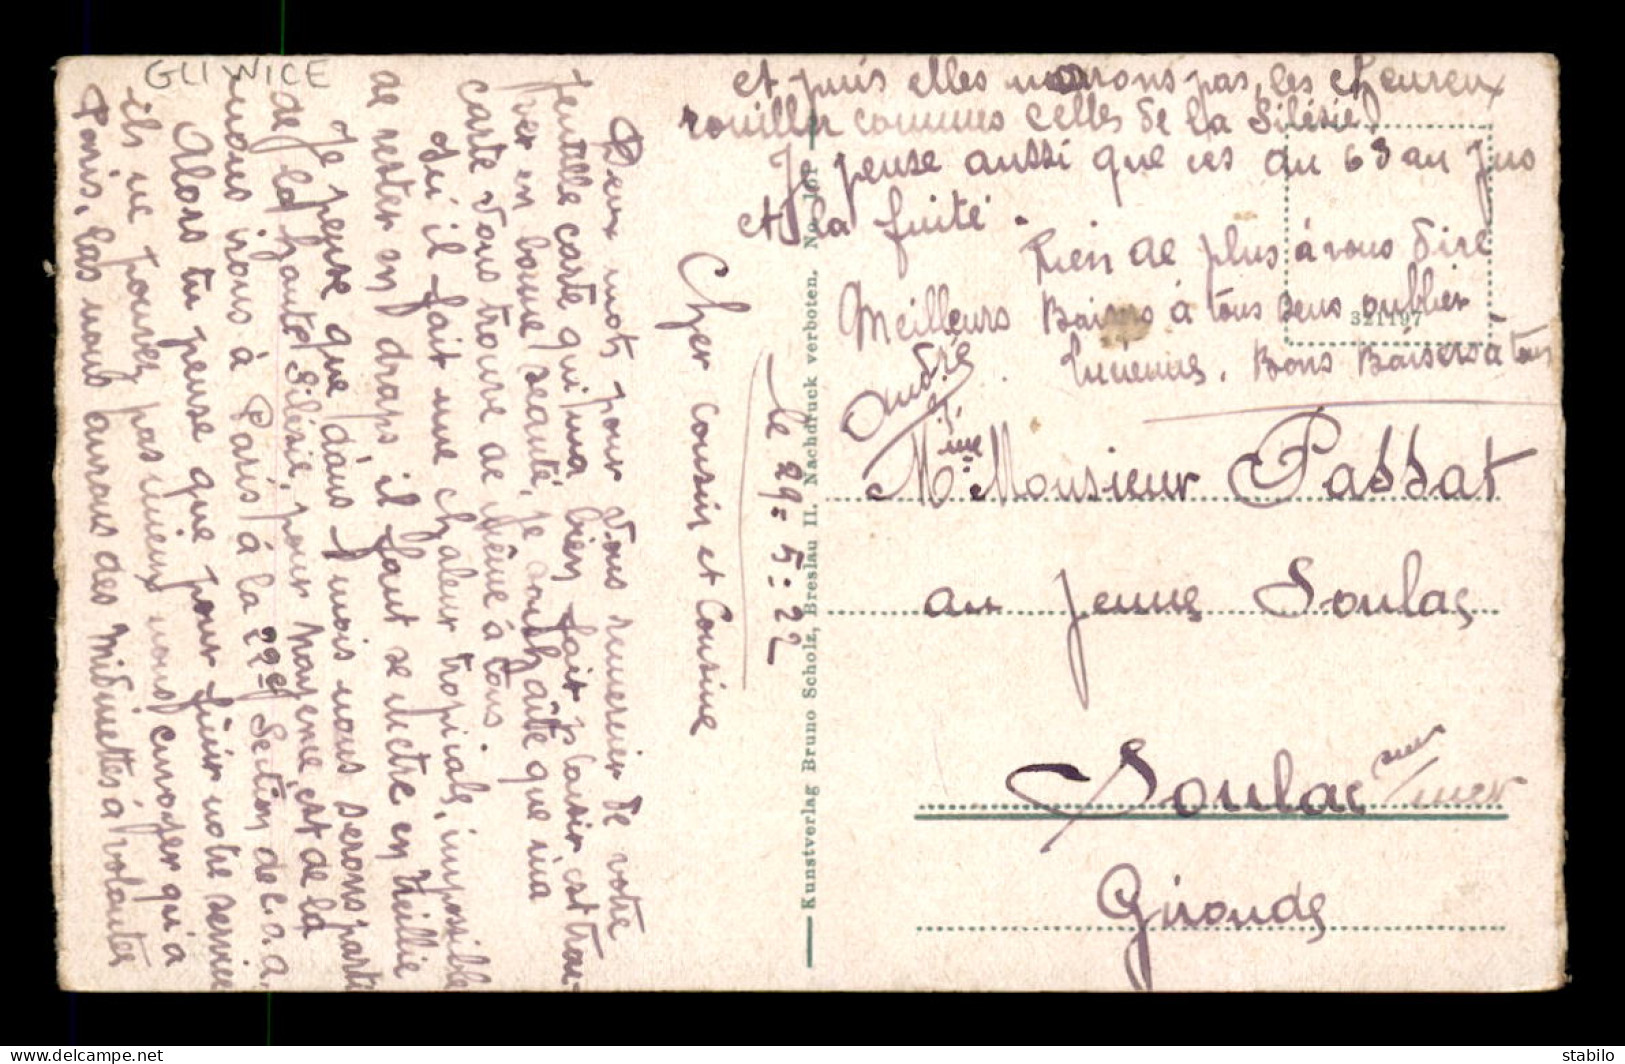 GLIWICE
le 29=5:22
Cher cousin et Cousine
Deux mots pour vous remercier de votre
jentille carte qui ma bien fait plaisir est trou-
ver en bonne seanté, je souhaite que ma
carte vous trouve de même à tous.
Ou il fait une chaleur tropicale, impossible
de rester en draps, il faut se mettre en
Je pense que dans 1 mois nous serons parti
de la haute Silésie, pour Mayence et de là
nous irons à Paris à la 22e Section de c.o.a.
Alors tu pense que pour finir notre service
ils ne pouvez pas mieux nous envoyer qu'a
Paris, las nous aurons des Midinettes à volontes
et puis elles naurons pas les cheureux
rouiller commes celles de la Silésie,
Je pense aussi que ces du 63 au Jus
et la fuite.
Rien de plus à vous dire
Meilleurs Baisers à tous sens oublier
Lucienne. Bons Baisers à tous
André
Mme Monsieur Passat
au jeune Soulac
Soulac sur/mer
Gironde
321197
Kunstverlag Bruno Scholz, Breslau II. Nachdruck verboten. No.